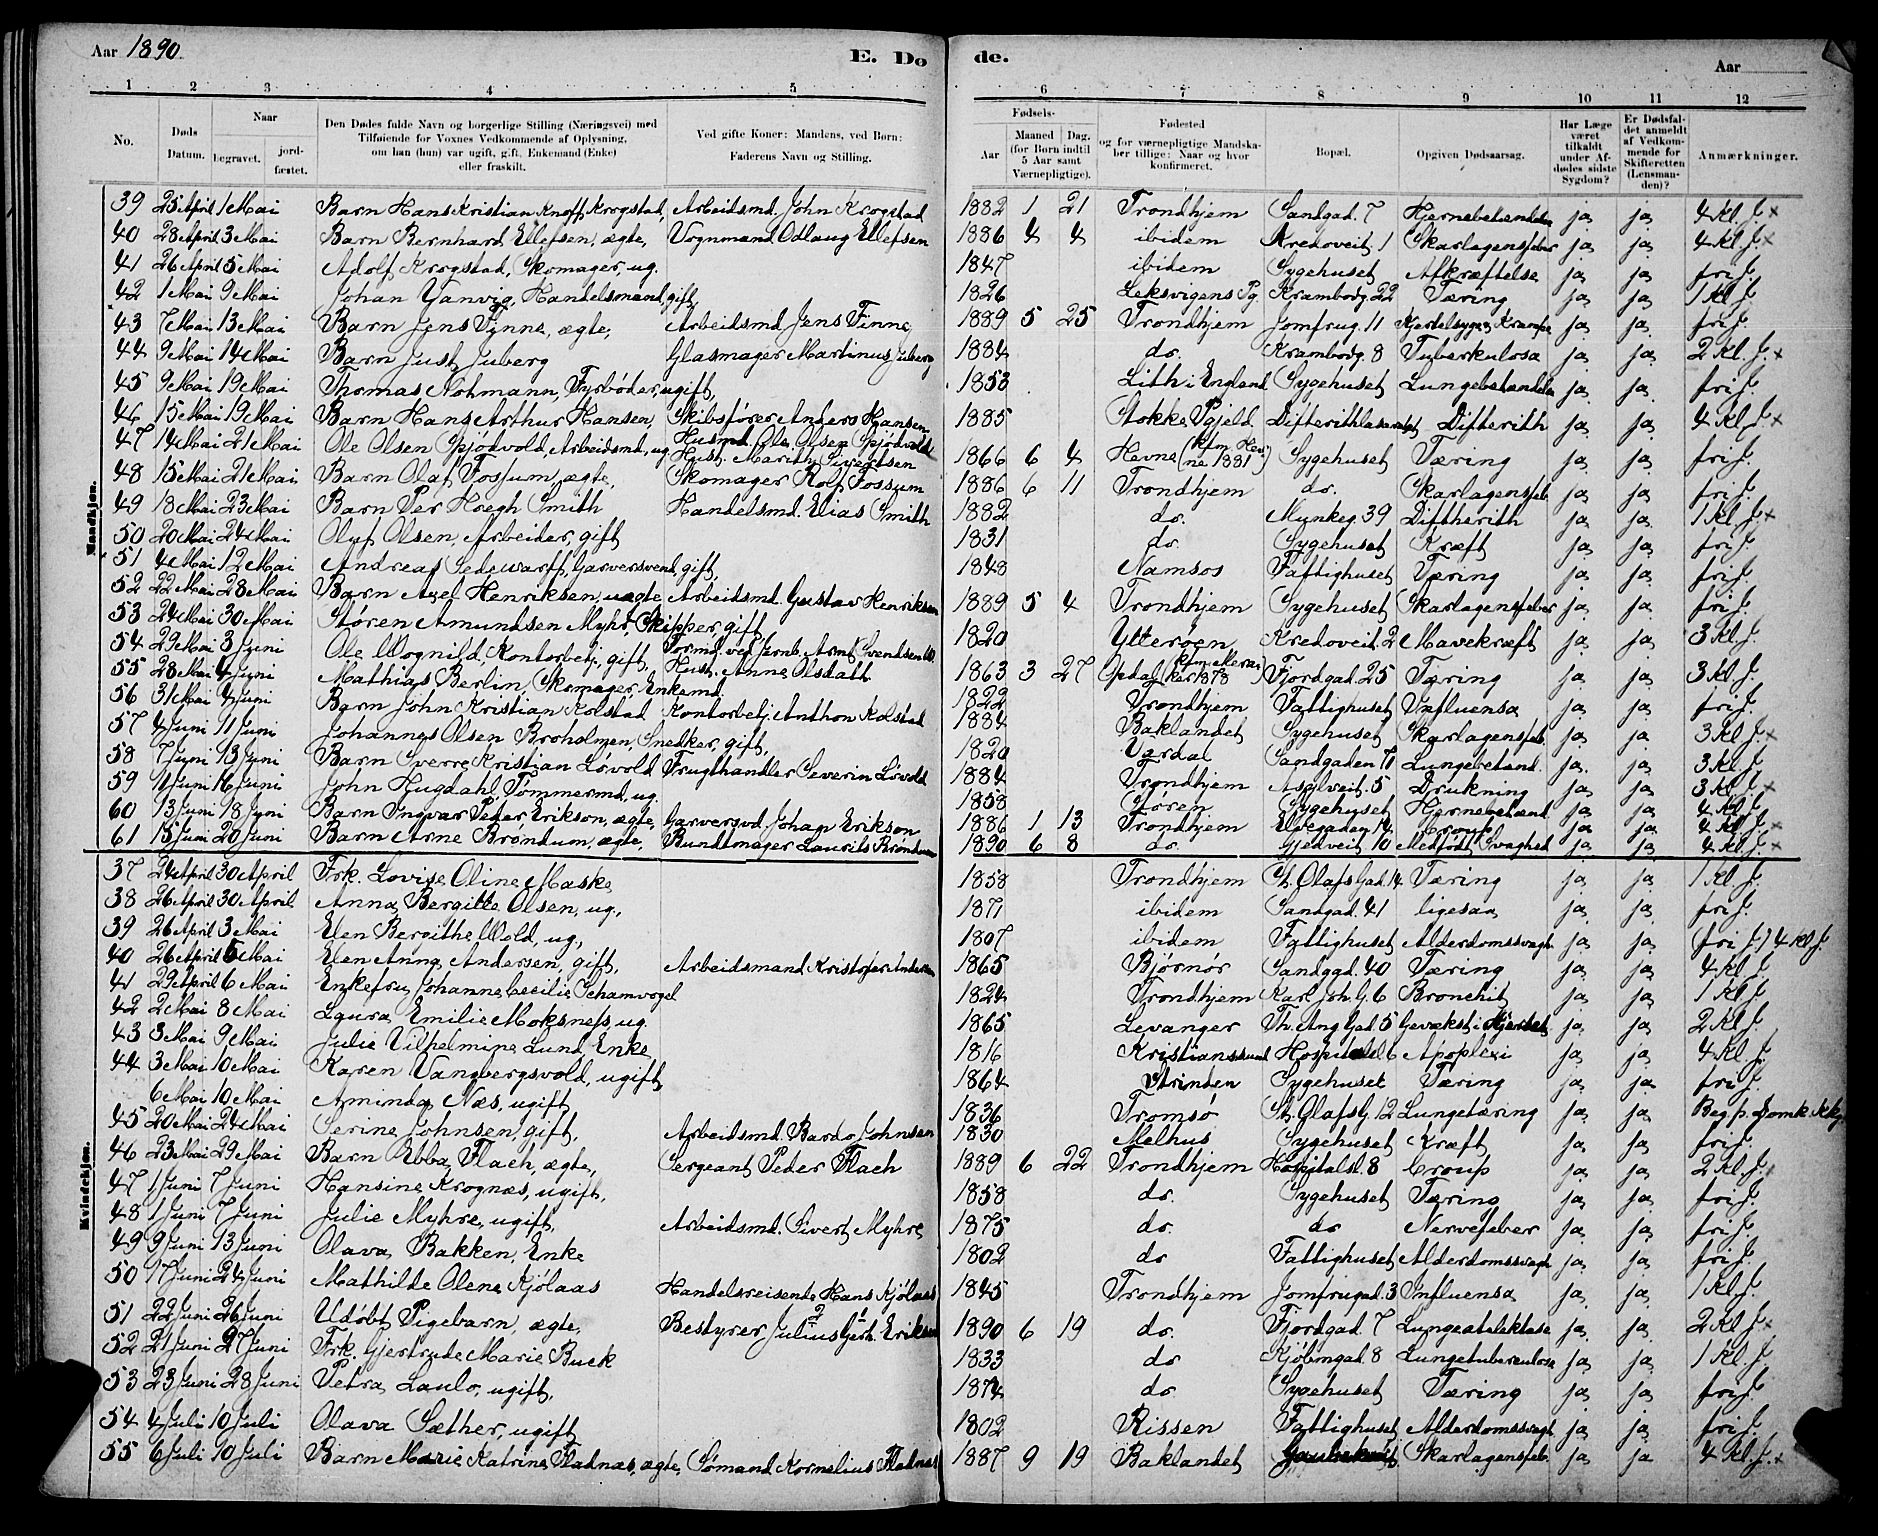 Aar 1890. E. Do de. Aar
1 2 3 4 5 6 7 8 9 10 11 12
No. Døds Datum. Naar begravet. jordfæstet. Den Dødes fulde Navn og borgerlige Stilling (Næringsvei) med Tilføiende for Voxnes Vedkommende af Oplysning, om han (hun) var ugift, gift, Enkemand (Enke) eller fraskilt. Ved gifte Koner: Mandens, ved Børn: Faderens Navn og Stilling. Fødsels- Aar Maaned Dag. (for Børn indtil 5 Aar samt Værnepligtige). Fødested og for værnepligtige Mandskaber tillige: Naar og hvor konfirmeret. Bopæl. Opgiven Dødsaarsag. Har Læge været tilkaldt under Afdødes sidste Sygdom? Er Dødsfaldet anmeldt af Vedkommende for Skifteretten (Lensmanden)? Anmærkninger.
Mandkjøn.
39 25 April 1 Mai Barn Hans Kristian Knoff Krogstad, Arbeidsmd. John Krogstad 1882 1 21 Trondhjem Sandgad. 7 Hjernebetændelse ja ja 4 Kl. J. x
40 28 April 3 Mai Barn Bernhard Ellefsen, ægte, Vognmand Odlaug Ellefsen 1886 4 4 ibidem Kredoveit. 1 Skarlagensfeber ja ja 4 Kl. J. x
41 26 April 5 Mai Adolf Krogstad, Skomager, ug. 1847 ibidem Sygehuset Afkræftelse ja ja fri J.
42 1 Mai 9 Mai Johan Vanvig, Handelsmand, gift, 1826 Leksvigens Pg. Krambodg. 22 Tæring ja ja 1 Kl J.
43 7 Mai 13 Mai Barn Jens Finne, ægte, Arbeidsmd Jens Finne 1889 5 25 Trondhjem Jomfrug. 11 Krampe ja ja fri J.
44 9 Mai 14 Mai Barn Just Juberg Glasmager Martinus Juberg 1884 do. Krambodg. 8 Tuberkulosa ja ja 2 Kl. J. x
45 9 Mai 19 Mai Thomas Nohmann, Fyrbøder, ugift, 1853 Lith i England Sygehuset Lungebetændelse ja ja fri J.
46 15 Mai 19 Mai Barn Hans Arthur Hansen, Skibsfører Anders Hansen 1885 Stokke Pgjeld Difterithlasarettet Difterith ja ja 4 Kl J. x
47 14 Mai 21 Mai Ole Olsen Spjødvold, Arbeidsmd, ug. Husmd. Ole Olsen Spjødvold Hust. Marith Sivertsen 1866 6 4 Hevne (kfm Hevne 1881) Sygehuset Tæring ja ja fri J.
48 15 Mai 21 Mai Barn Olaf Fossum, ægte, Skomager Rolf Fossum 1886 6 11 Trondhjem do. Skarlagensfeb. ja ja fri J.
49 18 Mai 23 Mai Barn Per Høegh Smith Handelsmd. Elias Smith 1882 do. Munkeg. 39 Diftherith ja ja 1 Kl. J. x
50 20 Mai 24 Mai Oluf Olsen, Arbeider, gift 1831 do. Sygehuset Kræft ja ja fri J.
51 4 Mai 12 Mai Andreas Sedewarff, Garversvend, gift, 1848 Namsos Fattighuset Tæring ja ja fri J.
52 22 Mai 28 Mai Barn Axel Henriksen, uægte Arbeidsmd. Gustav Henriksen 1889 5 4 Trondhjem Sygehuset Skarlagensfeber ja ja fri J.
53 24 Mai 30 Mai Støren Amundsen Myhr, Skipper, gift, 1820 Ytterøen Kredoveit. 2 Mavekræft ja ja 3 Kl. J.
54 29 Mai 3 Juni Ole Wognild, Kontorbetj., gift, Formd. ved Jernb. Arnt Svendsen W. Hust. Anne Olsdatt 1863 3 27 Opdal 1878 Fjordgad. 25 Tæring ja ja 3 Kl. J.
55 28 Mai 4 Juni Mathias Berlin, Skomager, Enkemd. 1822 Trondhjem Fattighuset Influensa ja ja fri J.
56 31 Mai 4 Juni Barn John Kristian Kolstad Kontorbetj. Anthon Kolstad 1884 Baklandet Sygehuset Skarlagensfeb. ja ja 3 Kl J. x
57 4 Juni 11 Juni Johannes Olsen Broholmen, Snedker, gift, 1820 Værdal Sandgaden 71 Lungebetænd. ja ja 3 Kl J.
58 7 Juni 13 Juni Barn Sverre Kristian Løvold Frugthandler Severin Løvold 1884 Trondhjem Asylveit. 5 Drukning ja ja 3 Kl J. x
59 11 Juni 16 Juni John Hugdahl, Tømmermd, ug. 1858 Støren Sygehuset Hjernebetænd. ja ja 4 Kl J.
60 13 Juni 18 Juni Barn Ingvar Peder Erikson, ægte, Garversvd. Johan Erikson 1886 1 13 Trondhjem Elvegaden 14 Croup ja ja 4 Kl J. x
61 15 Juni 20 Juni Barn Arne Brøndum, ægte, Bundtmager Laurits Brøndum 1890 6 8 do. Gjedveit 10 Medfødt Svaghed ja ja 4 Kl J. x
Kvindekjøn.
37 24 April 30 April Frk. Lovise Oline Maske 1858 Trondhjem St. Olafs Gad. 14. Tæring ja ja 1 Kl. J.
38 26 April 30 April Anna Bergitte Olsen, ug., 1871 ibidem Sandgad. 41 ligesaa ja ja fri J.
39 26 April 3 Mai Elen Bergithe Wold, ug, 1807 ibidem Fattighuset Alderdomssvagh. ja ja (fri J.) 4 Kl J.
40 26 April 5 Mai Elen Anna Andersen, gift, Arbeidsmand Kristofer Andersen 1865 Bjørnør Sandgd. 40 Tæring ja ja 4 Kl J.
41 29 April 6 Mai Enkefru Johanne Cecilie Schamvogel 1824 Trondhjem Karl Joh. G. 6 Bronchit ja ja 1 Kl J.
42 2 Mai 8 Mai Laura Emilie Moksness, ug. 1865 Levanger Th. Ang Gad. 5 Gevækst i Hjertet ja ja 2 Kl J.
43 3 Mai 9 Mai Julie Vilhelmine Lund, Enke 1816 Kristianssund Hospitalsl 6 Apoplexi ja ja 4 Kl. J.
44 3 Mai 10 Mai Karen Vangbergsvold, ugift, 1864 Strinden Sygehuset Tæring ja ja fri J.
6 Mai 10 Mai Aminda Næs, ugift 1836 Tromsø St. Olafs G. 12 Lungetæring ja ja Beg. p. Domk. Kkg.
45 20 Mai 24 Mai Serine Johnsen, gift, Arbeidsmd. Bardo Johnsen 1830 Melhus Sygehuset Kræft ja ja fri J.
46 23 Mai 29 Mai Barn Ebba Flach, ægte, Sergeant Peder Flach 1889 6 22 Trondhjem Hospitalsl. 8 Croup ja ja 2 Kl J. x
47 1 Juni 7 Juni Hansine Krognæs, ugift, 1858 do. Sygehuset Tæring ja ja fri J.
48 1 Juni 7 Juni Julie Myhre, ugift, Arbeidsmd. Sivert Myhre 1875 do. do Nervefeber ja ja fri J.
49 9 Juni 13 Juni Olava Bakken, Enke 1802 do Fattighuset Alderdomssvagh ja ja fri J.
50 17 Juni 24 Juni Mathilde Olene Kjølaas Handelsreisende Hans Kjølaas 1845 Trondhjem Jomfrugad. 3 Influensa ja ja 1 Kl J.
51 22 Juni 26 Juni Udøbt Pigebarn, ægte, Bestyrer Julius Gjert. Eriksen 1890 6 19 do. Fjordgad. 7 Lungeatelektase ja ja 2 Kl J. x
52 21 Juni 27 Juni Frk. Gjertrude Marie Buck 1833 do Kjøbmgad. 8 Lungetuberculosa ja ja 1 Kl. J.
53 23 Juni 28 Juni Petra Laulo, ugift, 1874 do. Sygehuset Tæring ja ja fri J.
54 4 Juli 10 Juli Olava Sæther, ugift 1802 Rissen Fattighuset Alderdomssvagh ja ja fri J.
55 6 Juli 10 Juli Barn Marie Katrine Fladnæs, ægte, Sømand Kornelius Fladnæs 1887 9 19 Baklandet Skarlagensfeb. ja ja 4 Kl. J. x